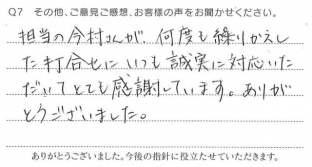 Q7 その他、ご意見ご感想、お客様の声をお聞かせください。
担当の今村さんが、何度も繰りかえし
た打合せにいつも誠実に対応いた
だいてとても感謝しています。ありが
とうございました。
ありがとうございました。今後の指針に役立たせていただきます。